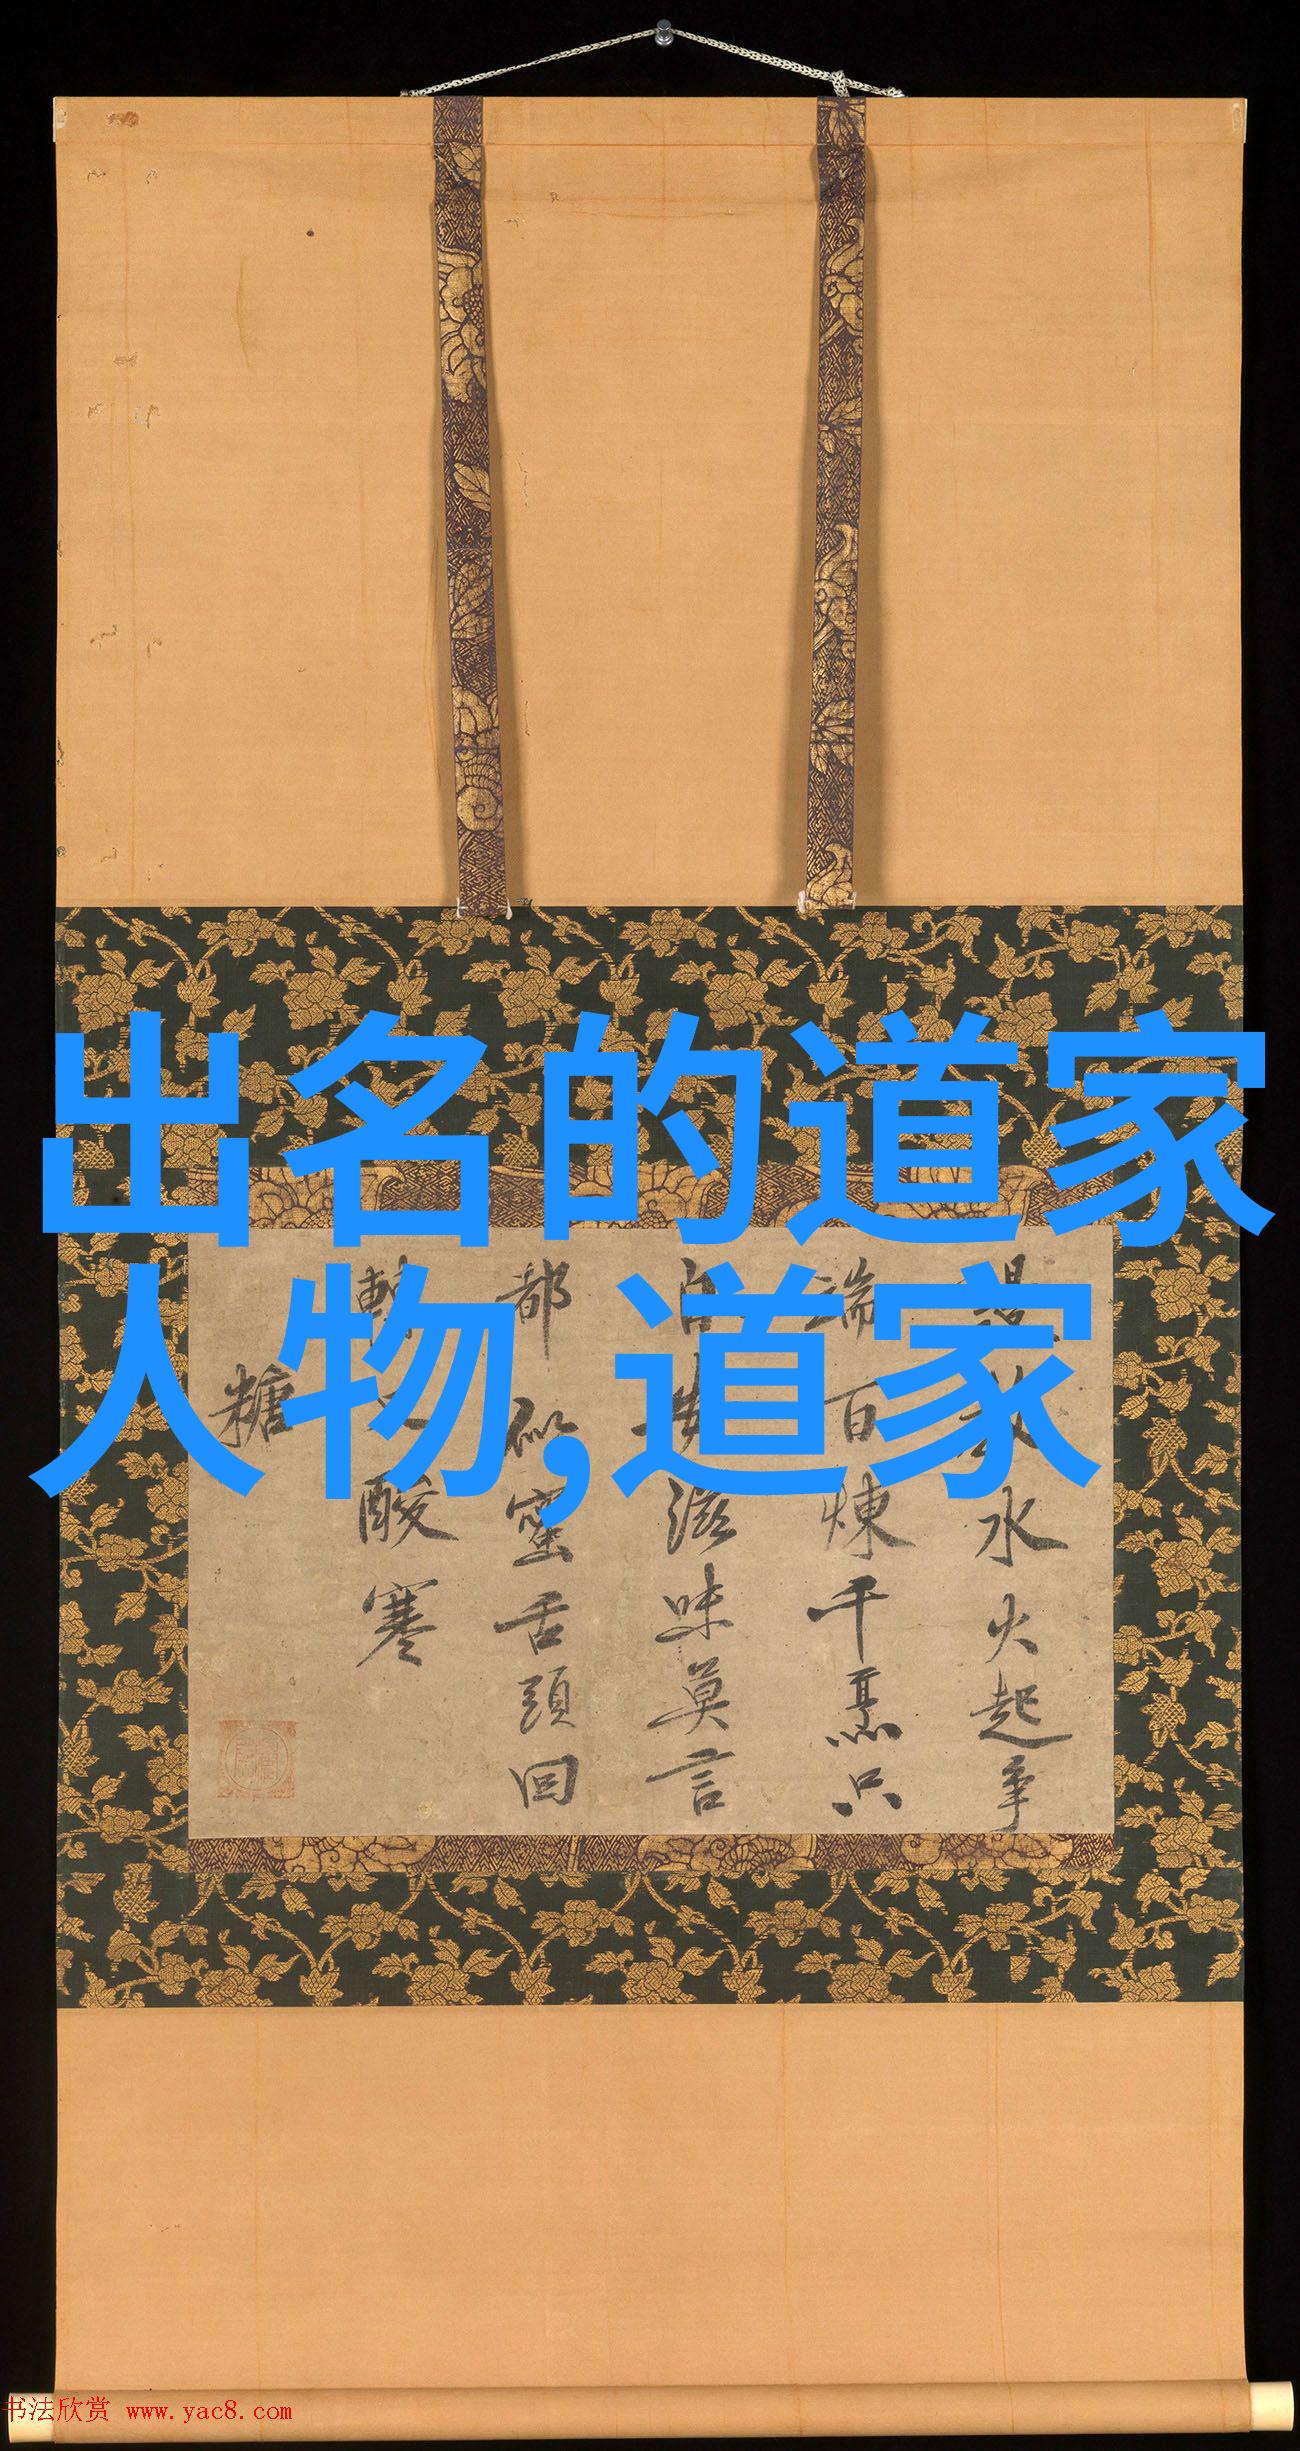 出名的道家
人物,道家
水火起爭
端百煉千烹只
自安滋味莫言
都似蜜舌頭回
轉又酸寒
糖
书法欣赏 www.yac8.com